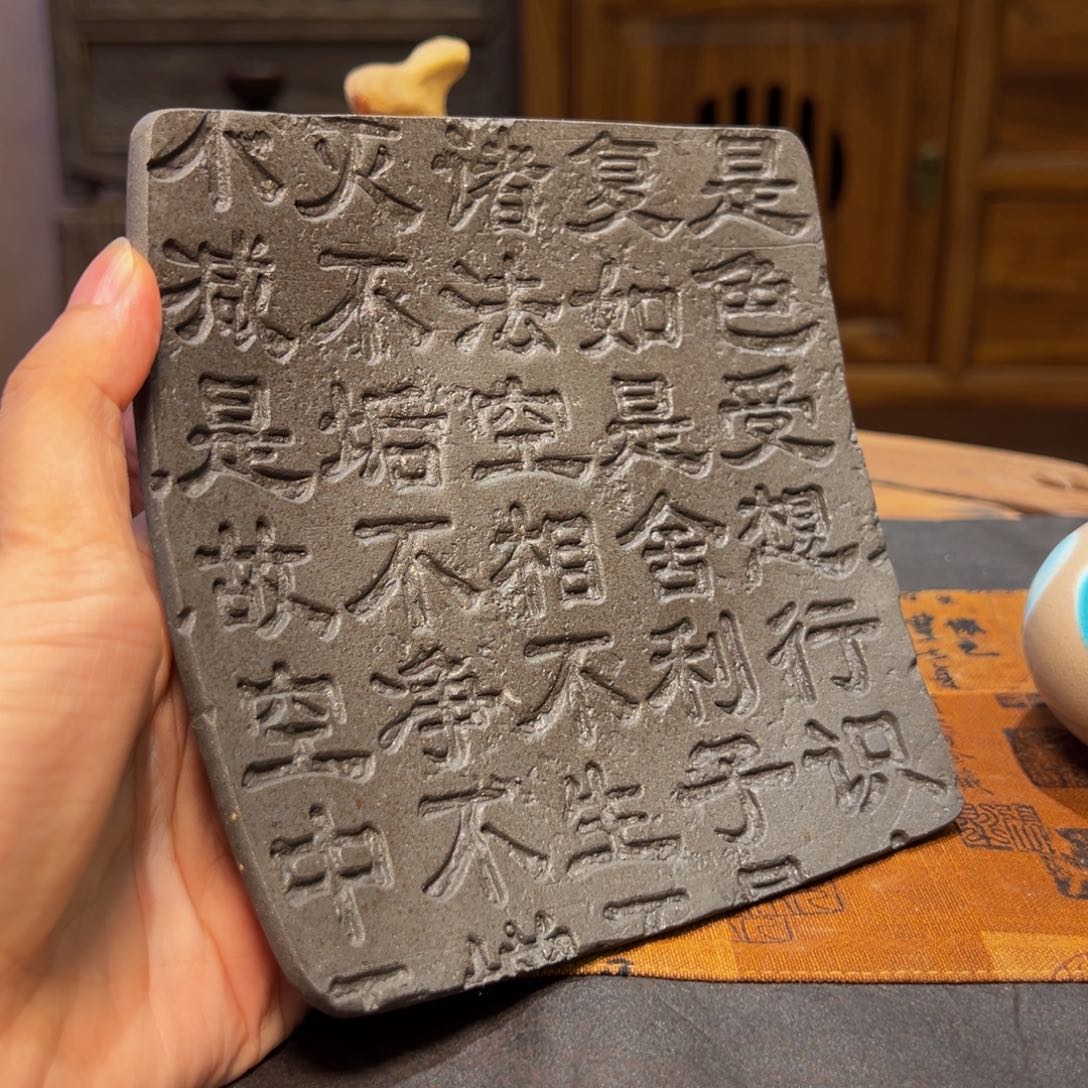 是色受想行识
复如是舍利子是
诸法空相不生不
灭不垢不净不增
不减是故空中